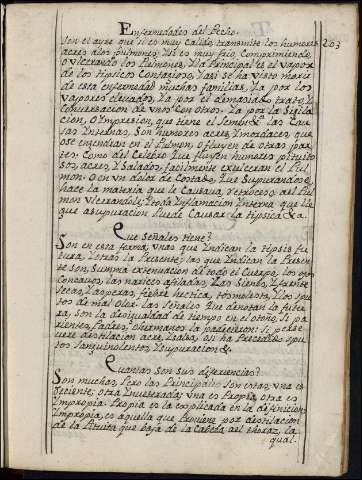 Enfermedades del Pecho.
203
Son el ayre que si es muy Calido, transmite los humores
acres alos pulmones, Y si es muy frio, Comprimiendo,
o Vlcerando los Pulmones, Y la Principal es el vapor
de los tipsicos Contagioso, Y assi se ha visto morir
de esta enfermedad muchas familias, Ya por los
vapores elevados, Ya por el demasiado trato, Y
Conversacion de Vnos Con Otros, Ya por la
cion, o Impresion, que tiene el Semen & las Cau
sas Internas, Son humores acres, Y mordaces, que
ose encienden en el Pulmon, o fluyen de otras par
tes: Como del Celebro que fluyen humores pituito
sos, acres, Y Salados, facilmente exulceran el Pul
mon: O en vn dolor de Costado, Que Supurandose
hace la materia que le Causava, retroceso, ael Pul
mon Vlcerandole; Y toda Inflamacion Interna que lle
gue asupuracion Puede Causar la tipsica & a.
Que Señales tiene?
Son en esta forma, Vnas que Indican la tipsis fu
tura, Y otras la Presente; las que Indican la Presen
te son, Summa extenuacion de todo el Cuerpo, los ojos
Concavos, las narices afiladas, Las Sienes, Y frente
Secas, Y asperas, fiebre hectica, tos molesta, Y los spu
tos de mal Olor. las Señales que denotan la futu
ra, Son la desigualdad de tiempos en el otoño, Si pa
rientes, Padres, o hermanos la padecieron: Si prece
viere destilacion acre, Y salsa, osi ha precedido spu
tos Sanguinolentos, Y Supuracion &
Quantas Son sus diferencias?
Son muchas, Pero las Principales son estas, Vna es
Reciente; otra Inveterada; Vna es Propia, otra es
Impropia. Propia es la explicada en la definicion:
Impropia, es aquella que Proviene por destilacion
de la Pituita que baja de la Cabeza ael thoraz, la
qual.